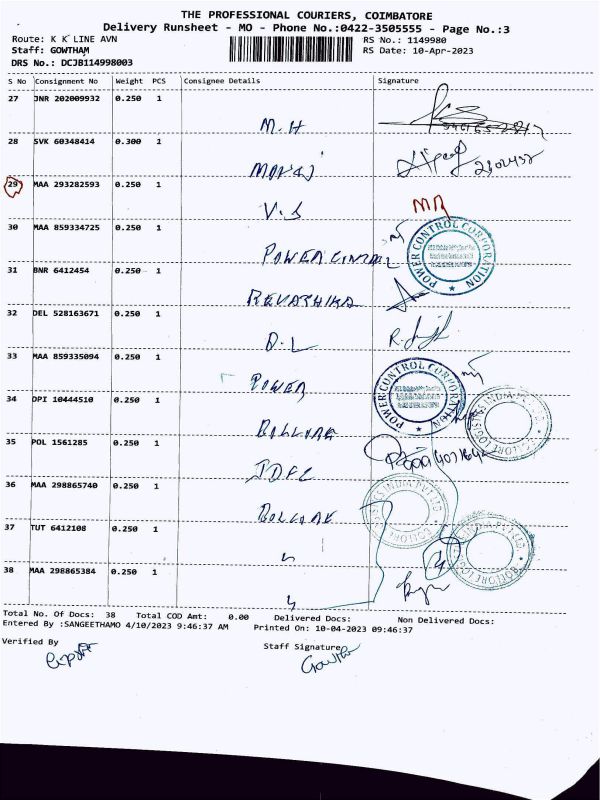 THE PROFESSIONAL COURIERS, COIMBATORE
Delivery Runsheet - MO - Phone No.:0422-3505555 - Page No.:3
Route: K K LINE AVN
RS No.: 1149980
Staff: GOWTHAM
RS Date: 10-Apr-2023
DRS No.: DCJB114998003
S No Consignment No Weight PCS Consignee Details Signature
27 JNR 202009932 0.250 1
M.H
28 SVK 60348414 0.300 1
29 MAA 293282593 0.250 1
V.S
30 MAA 859334725 0.250 1
POWER CONTROL
POWER CONTROL CORPORATION
31 BNR 6412454 0.250 1
REVATHIKA
32 DEL 528163671 0.250 1
D.L
33 MAA 859335094 0.250 1
POWER
POWER CONTROL CORPORATION
34 DPI 10444510 0.250 1
BOLLORE
BOLLORE LOGISTICS INDIA PVT LTD.
35 POL 1561285 0.250 1
IDFC
36 MAA 298865740 0.250 1
BOLLORE
37 TUT 6412108 0.250 1
"
38 MAA 298865384 0.250 1
"
Total No. Of Docs: 38 Total COD Amt: 0.00 Delivered Docs: Non Delivered Docs:
Entered By :SANGEETHAMO 4/10/2023 9:46:37 AM Printed On: 10-04-2023 09:46:37
Verified By
Staff Signature
Gowtham